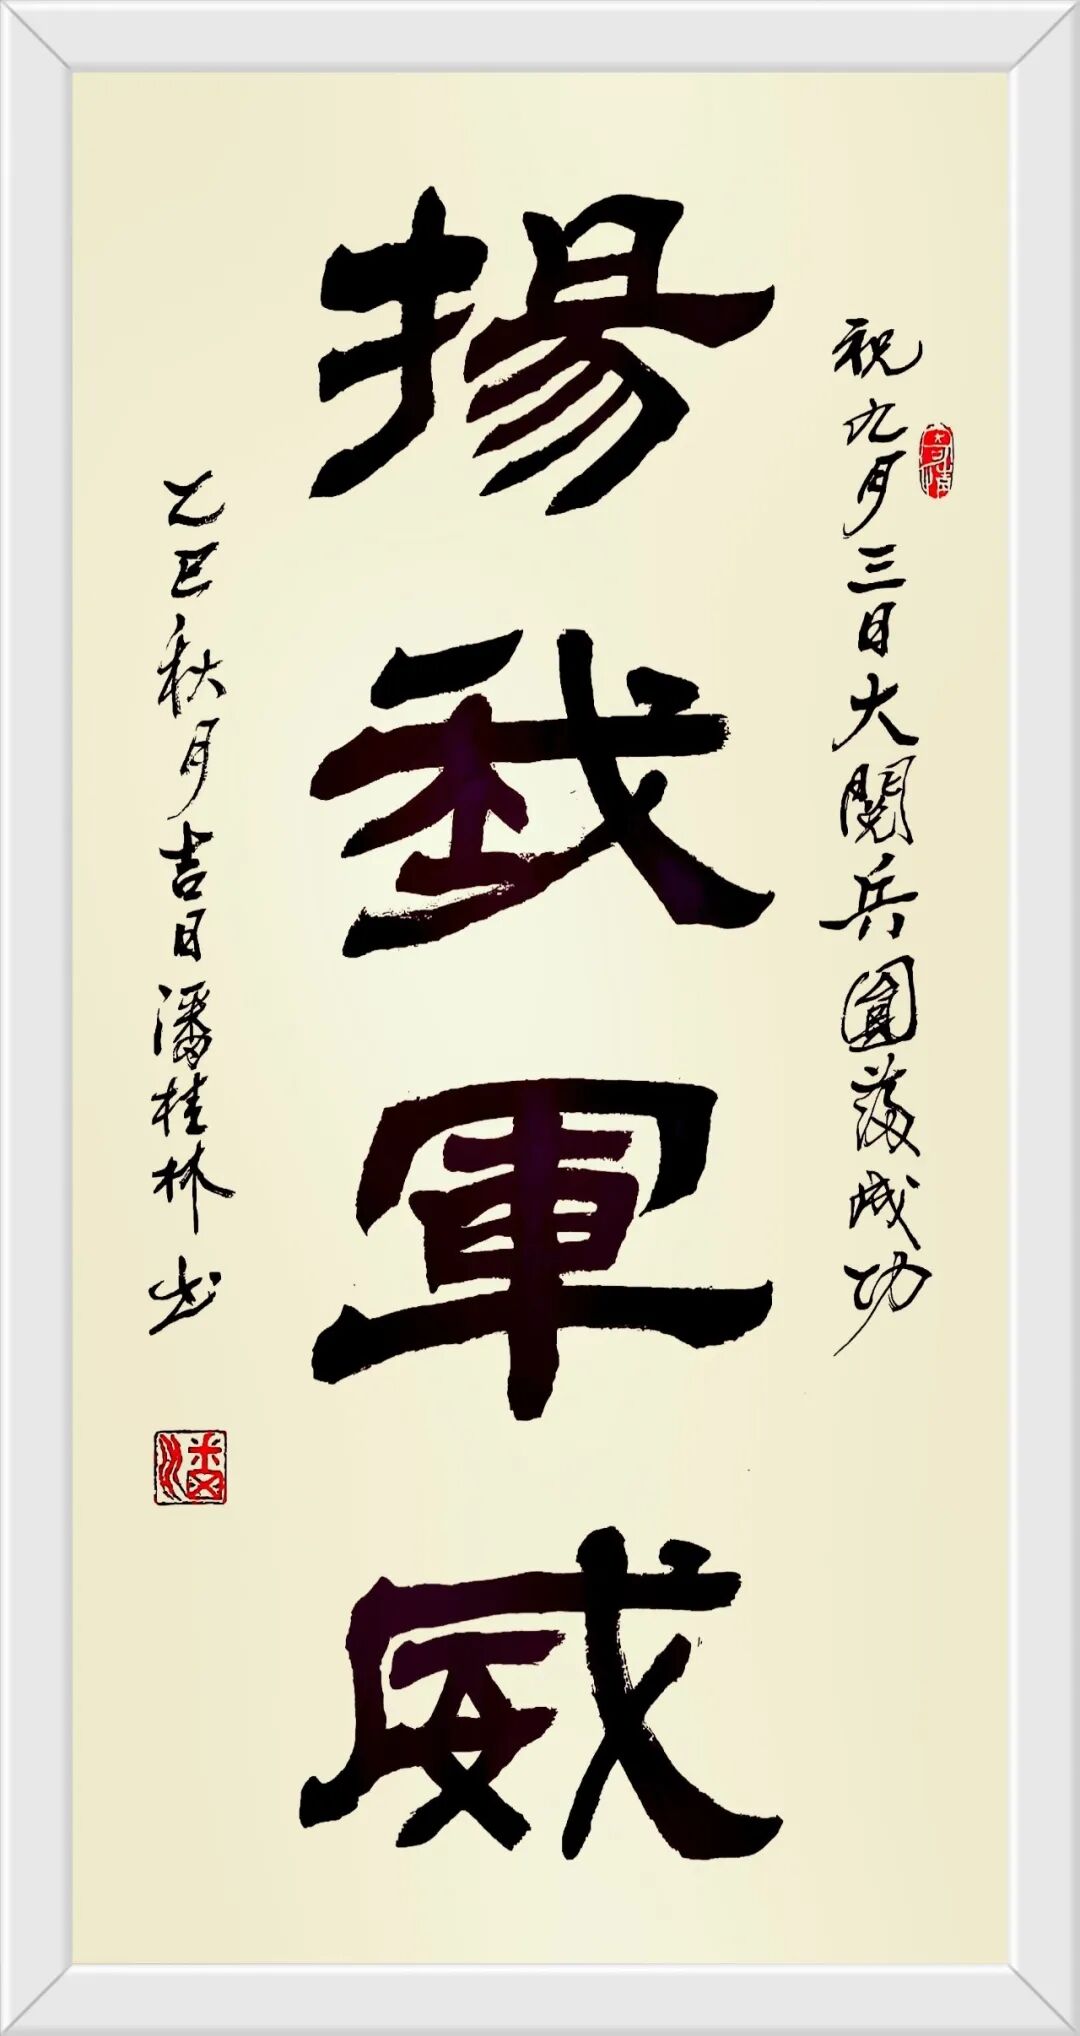 祝九月三日大閱兵圓滿成功
揚我軍威
乙巳秋月吉日潘桂林书
潘